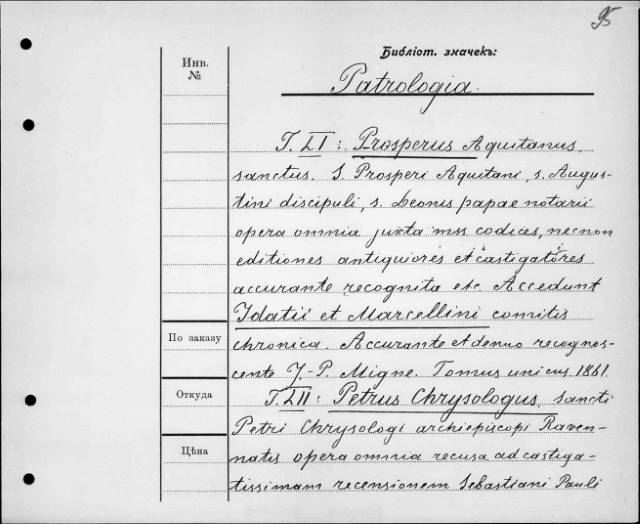 95
Библіот. значекъ:
Инв.
№
Patrologia.
T. LI: Prosperus Aquitanus,
sanctus. S. Prosperi Aquitani, s. Augus-
tini discipuli, s. Leonis papae notarii
opera omnia juxta mss codices, necnon
editiones antiquiores et castigatores
accurante recognita etc. Accedunt
Idatii et Marcellini comitis
По заказу
chronica. Accurante et denuo recognos-
cente J.-P. Migne. Tomus unicus. 1861.
Откуда
T. LII: Petrus Chrysologus, sancti
Petri Chrysologi archiepiscopi Raven-
natis opera omnia recusa ad castiga-
Цѣна
tissimam recensionem Sebastiani Pauli